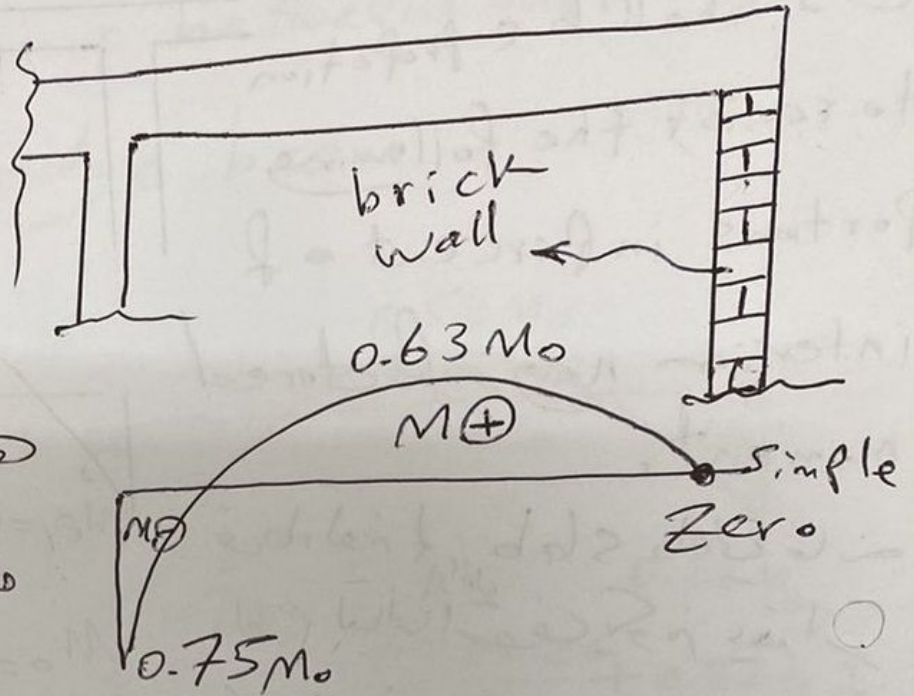 brick
wall
0.63 Mo
M⊕
Simple
Zero
M⊖
0.75 Mo